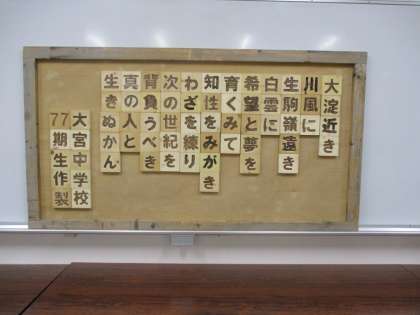 大淀近き
川風に
生駒嶺遠き
白雲に
希望と夢を
育くみて
知性をみがき
わざを練り
次の世紀を
背負うべき
真の人と
生きぬかん
大宮中学校
77期生作製